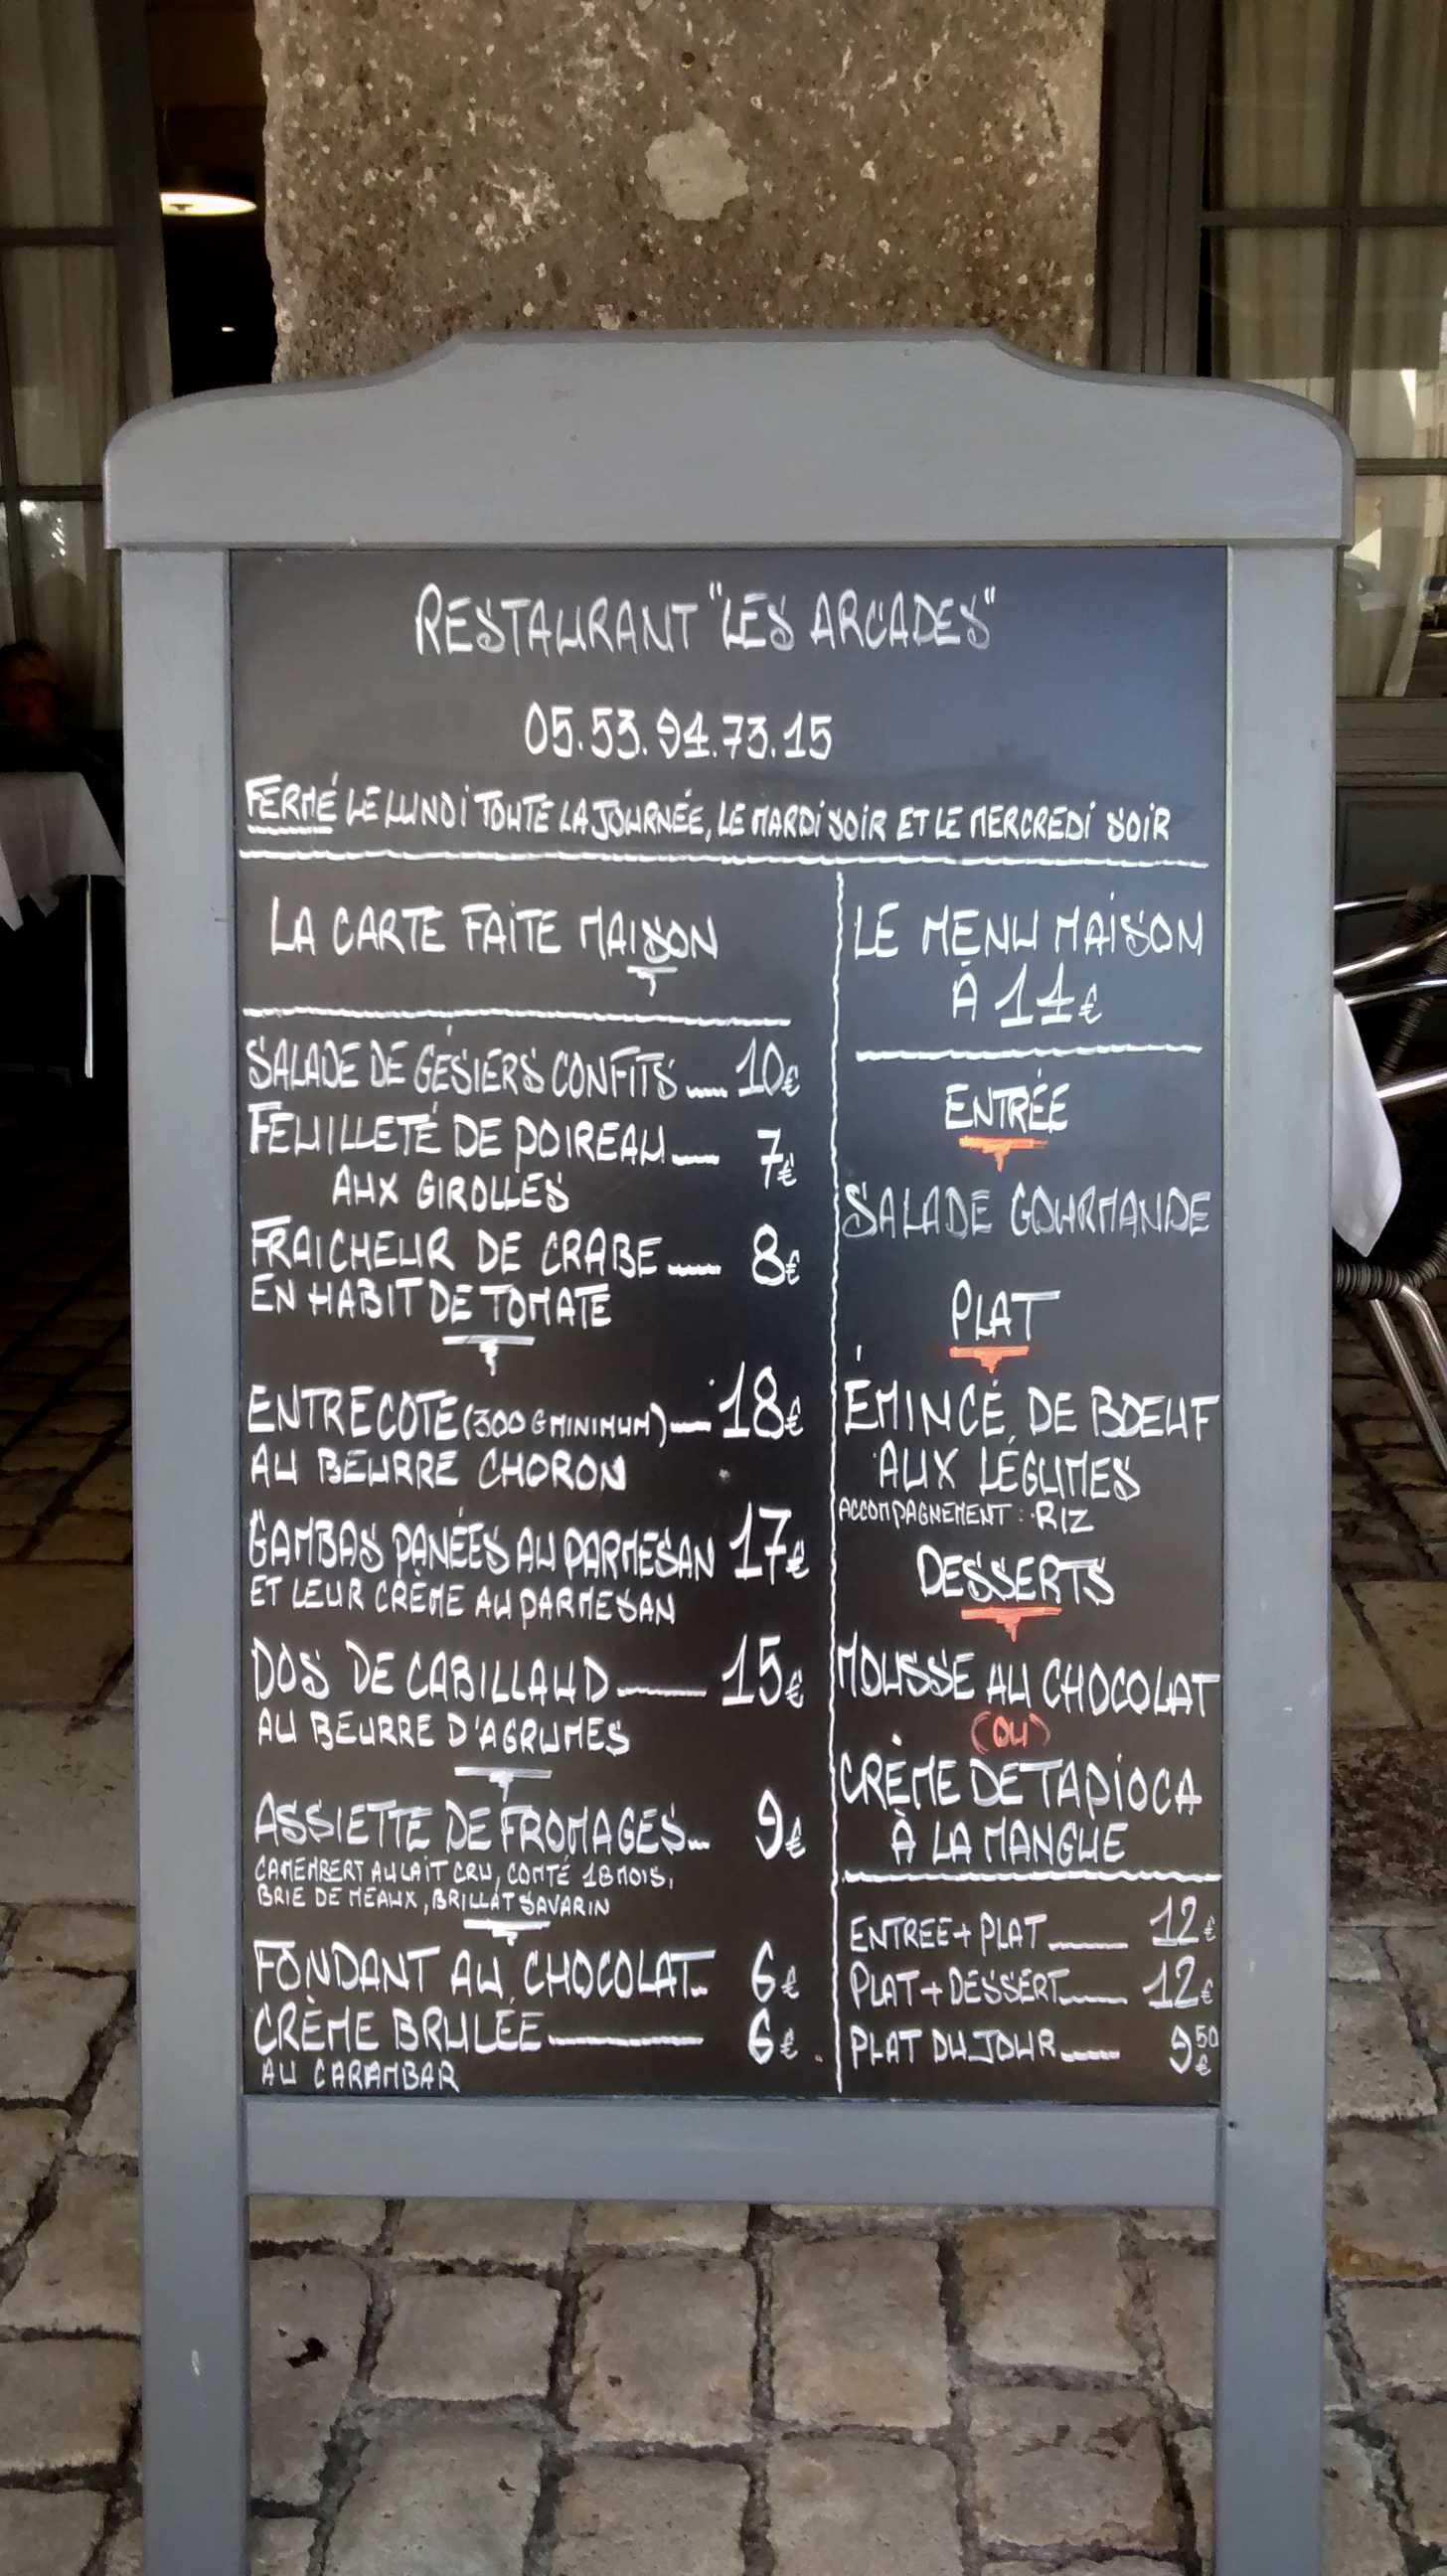 RESTAURANT "LES ARCADES"
05.53.94.73.15
FERMÉ LE LUNDI TOUTE LA JOURNÉE, LE MARDI SOIR ET LE MERCREDI SOIR
LA CARTE FAITE MAISON
SALADE DE GÉSIERS CONFITS.... 10€
FEUILLETÉ DE POIREAU.... 7€
AUX GIROLLES
FRAICHEUR DE CRABE.... 8€
EN HABIT DE TOMATE
ENTRECOTE (300 G MINIMUM).... 18€
AU BEURRE CHORON
GAMBAS PANÉES AU PARMESAN 17€
ET LEUR CRÈME AU PARMESAN
DOS DE CABILLAUD.... 15€
AU BEURRE D'AGRUMES
ASSIETTE DE FROMAGES... 9€
CAMEMBERT AU LAIT CRU, COMTÉ 18 MOIS,
BRIE DE MEAUX, BRILLAT SAVARIN
FONDANT AU CHOCOLAT.. 6€
CRÈME BRULÉE.... 6€
AU CARAMBAR
LE MENU MAISON
À 14€
ENTRÉE
SALADE GOURMANDE
PLAT
ÉMINCÉ DE BOEUF
AUX LÉGUMES
ACCOMPAGNEMENT : RIZ
DESSERTS
MOUSSE AU CHOCOLAT
(OU)
CRÈME DE TAPIOCA
À LA MANGUE
ENTREE + PLAT.... 12€
PLAT + DESSERT.... 12€
PLAT DU JOUR.... 9€50